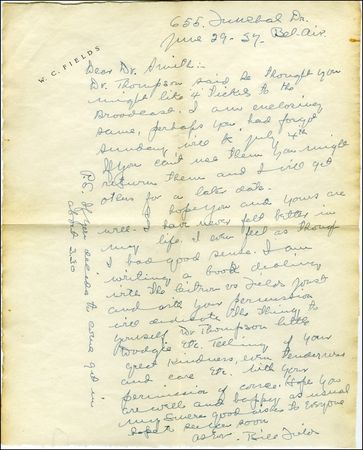 W. C. FIELDS
655. Funchal Dr.
June 29-37. Bel-Air.
Dear Dr. Smith:-
Dr. Thompson said he thought you
might like 4 tickets to the
Broadcast. I am enclosing
same, perhaps you had forgot
Sunday will be July 4th
If you can't use them you might
return them and I will get
others for a later date.
I hope you and yours are
well- I have never felt better in
my life. I even feel as though
I had good sense. I am
writing a book dealing
with the Citron vs Fields
and with your permission
will dedicate the thing to
yourself Dr Thompson little
etc. Telling of your
great kindness, even tenderness
and care etc. With your
permission of course. Hope you
are well and happy as usual
my sincere good wishes to everyone
hope to see you soon
as ever. Bill Fields
P.S. If you decide to come get in
about 4:30